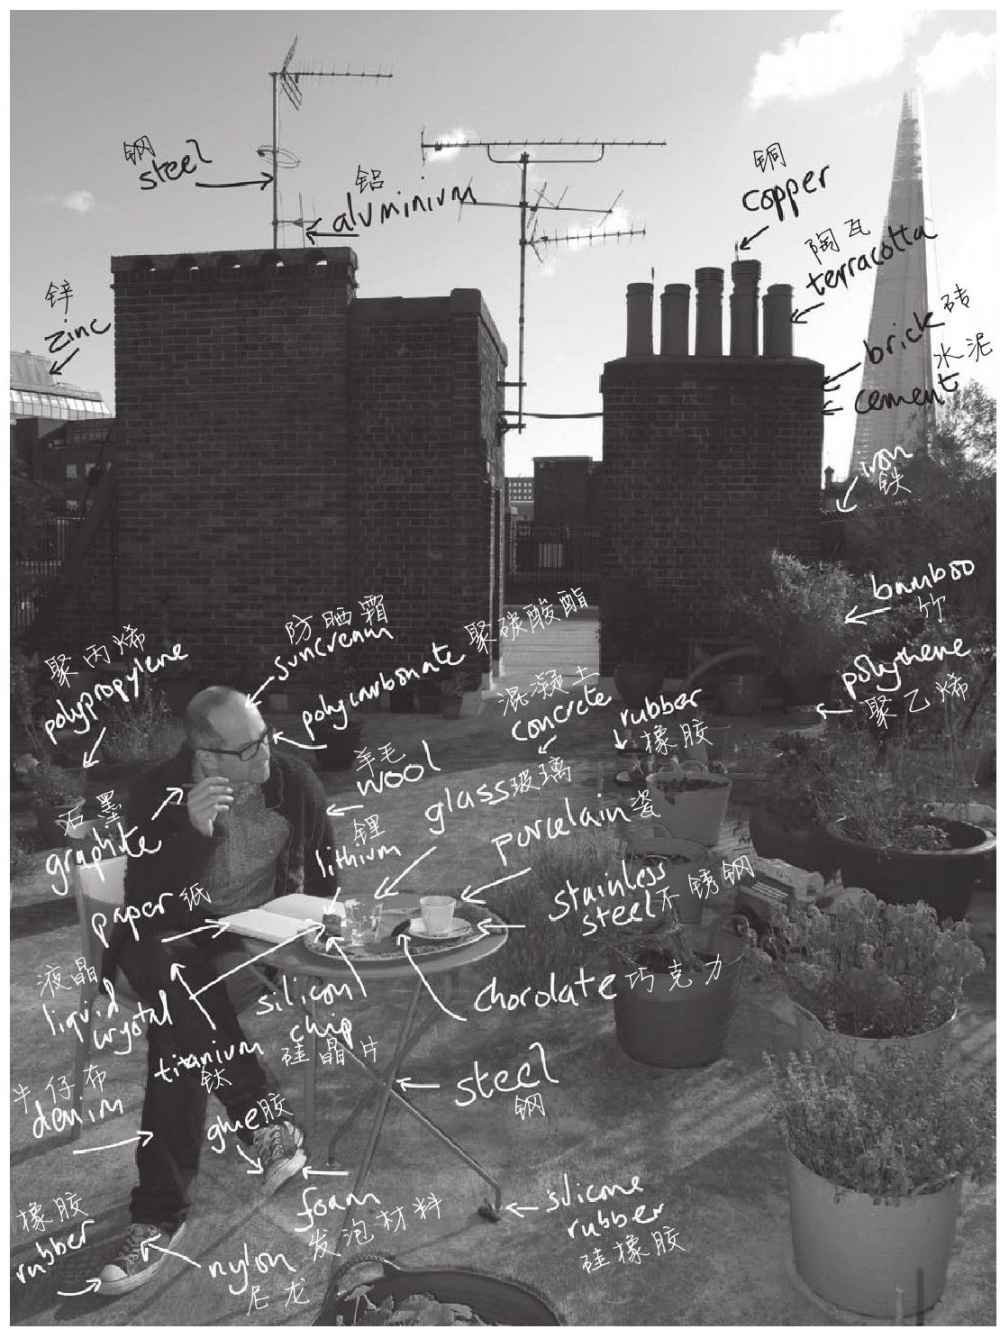 钢
steel
铝
aluminium
铜
copper
陶瓦
terracotta
锌
zinc
brick 砖
水泥
cement
iron
铁
bamboo
竹
防晒霜
suncream
聚丙烯
polypropylene
polycarbonate 聚碳酸酯
polythene
聚乙烯
混凝土
concrete
rubber
橡胶
羊毛
wool
glass 玻璃
石墨
graphite
锂
lithium
porcelain 瓷
paper 纸
stainless
steel 不锈钢
液晶
liquid
crystal
silicon
chip
硅晶片
chorolate 巧克力
titanium
钛
牛仔布
denim
steel
钢
glue 胶
foam
发泡材料
橡胶
rubber
nylon
尼龙
silicone
rubber
硅橡胶